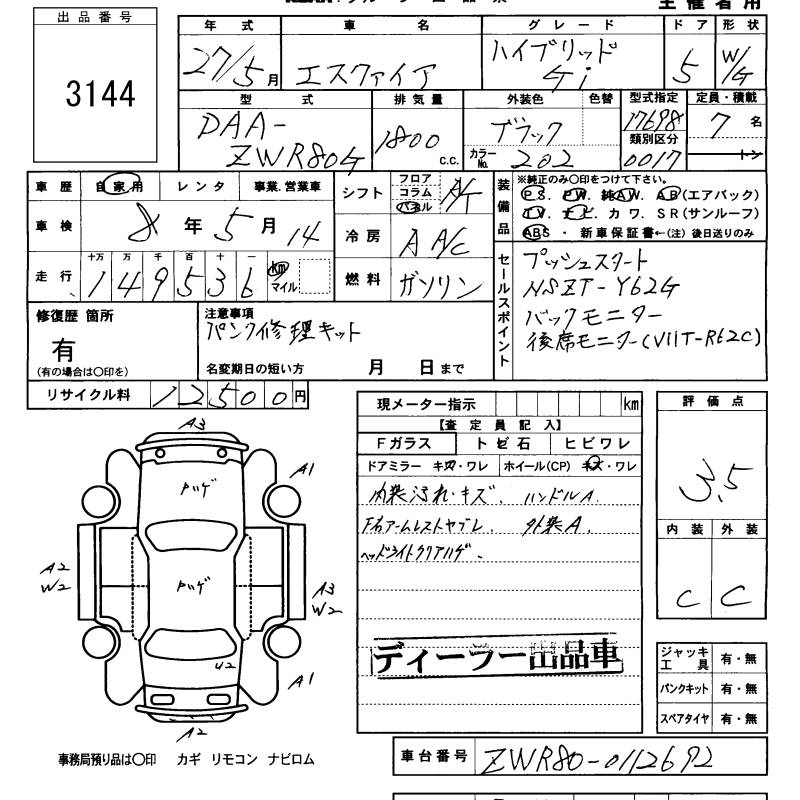 主催者用
出品番号
3144
年式 車名 グレード ドア 形状
27/5月 エスクァイア ハイブリッド Gi 5 W/G
型式 排気量 外装色 色替 型式指定 定員・積載
DAA-ZWR80G 1800 c.c. ブラック カラーNo. 202 17698 類別区分 0017 7名 トン
車歴 自家用 レンタ 事業.営業車
シフト フロア コラム パネル A/T
装備品 ※純正のみ〇印をつけて下さい。
PS. PW. 純AW. AB(エアバック)
TV. ナビ. カワ. SR(サンルーフ)
ABS ・ 新車保証書←(注) 後日送りのみ
車検 8年5月14
冷房 AA/C
走行 十万 万 千 百 十 一 km マイル
149536
燃料 ガソリン
セールスポイント プッシュスタート
NSZT-Y62G
バックモニター
後席モニター(V11T-R62C)
修復歴 箇所
有
(有の場合は〇印を)
注意事項
パンク修理キット
名変期日の短い方 月 日まで
リサイクル料 12500円
現メーター指示 km
【査定員記入】
Fガラス トビ石 ヒビワレ
ドアミラー キズ・ワレ ホイール(CP) キズ・ワレ
内装汚れ・キズ. ハンドルA.
F右アームレストヤブレ. 外装A.
ヘッドライトクリアハゲ.
ディーラー出品車
評価点
3.5
内装 外装
C C
A3
A1
ハゲ
A2
W2
ハゲ
A3
W2
U2
A1
A2
ジャッキ工具 有・無
パンクキット 有・無
スペアタイヤ 有・無
事務局預り品は〇印 カギ リモコン ナビロム
車台番号 ZWR80-0112692